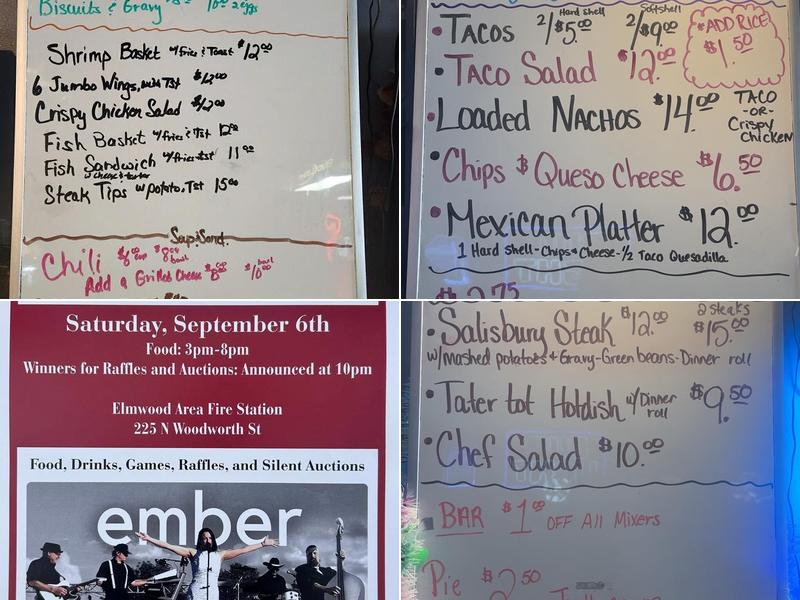 Biscuits & Gravy
2 eggs
Shrimp Basket w/fries & Toast $12.00
6 Jumbo Wings, with Tst
Crispy Chicken Salad
Fish Basket w/fries & Tst 12.00
Fish Sandwich w/fries & tst 11.00
w/cheese & tartar
Steak Tips w/potato, Tst 15.00
Soup & Sand.
Chili $6 cup $8 bowl
Add a Grilled Cheese $8.00 bowl $10.00
Hard shell Softshell
• Tacos 2/$5.00 2/$9.00
*ADD RICE!
$1.50
• Taco Salad $12.00
• Loaded Nachos $14.00 TACO
-OR-
Crispy
Chicken
• Chips & Queso Cheese $6.50
• Mexican Platter $12.00
1 Hard shell-Chips & Cheese-1/2 Taco Quesadilla
$2.75
Saturday, September 6th
Food: 3pm-8pm
Winners for Raffles and Auctions: Announced at 10pm
Elmwood Area Fire Station
225 N Woodworth St
Food, Drinks, Games, Raffles, and Silent Auctions
ember
2 steaks
• Salisbury Steak $12.00 $15.00
w/mashed potatoes & Gravy-Green beans-Dinner roll
• Tater tot Hotdish w/Dinner roll $9.50
• Chef Salad $10.00
BAR $1.00 OFF All Mixers
Pie $2.50